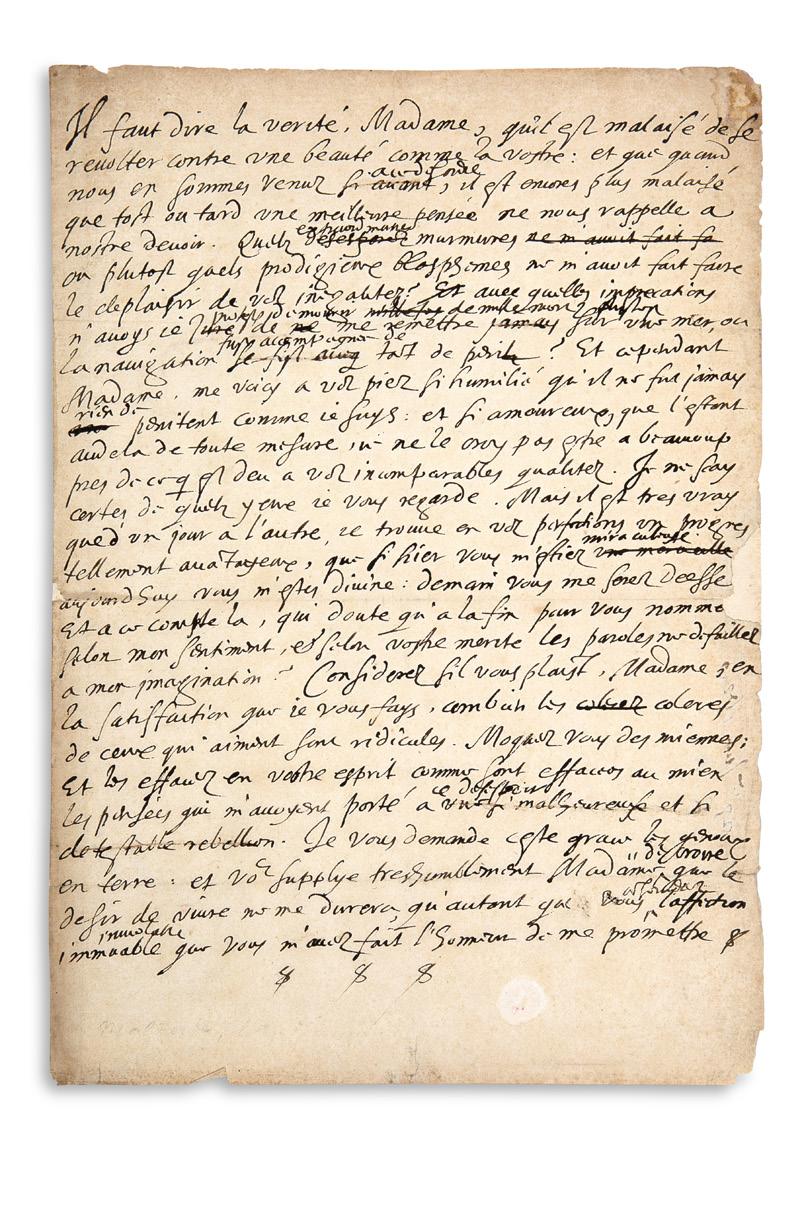 Il faut dire la verité, Madame, qu'il est malaisé de se
revolter contre vne beauté comme la vostre : et que quand
nous en sommes venuz si auant, il est encores plus malaisé
que tost ou tard vne meilleure pensée ne nous rappelle a
nostre deuoir. Quelz murmures ne m'auoit fait fa
ou plutost quels prodigieux blasphemes ne m'auoit fait faire
le deplaisir de voz inegalitez? Et auec quelles imprecations
n'auoys ie de me remettre jamays sur vne mer, ou
fust accompagnée de
la nauigation tant de perilz ? Et cependant
Madame, me voicy a voz piez si humilié qu'il ne fut jamays
rien de
penitent comme ie suys : et si amoureux, que l'estant
audela de toute mesure, ie ne le croy pas estre a beaucoup
pres de ce q est deu a voz incomparables qualitez. Je ne sçay
certes de quelz yeux ie vous regarde. Mais il est tres vray
que d'vn jour a l'autre, ie trouue en voz perfections vn progres
miraculeuse
tellement auātageux, que si hier vous m'estiez vne merueille
aujourd'huy vous m'estes diuine : demain vous me serez Deesse
Et a ce compte la, qui doute qu'a la fin pour vous nommer
selon mon sentiment, et selon vostre merite les paroles ne defaillet
a mon imagination ? Considerez s'il vous plaist, Madame, en
la satisfaction que ie vous fays, combien les colerez coleres
de ceux qui aiment sont ridicules. Moquez vous des miennes;
Et les effacez en vostre esprit comme sont effacees au mien
ce desespoir
les pensées qui m'auoyent porté a vne si malheureuse et si
detestable rebellion. Je vous demande ceste grace les genoux
d'croire
en terre : et vo9 supplye treshumblement Madame que le
desir de viure ne me durera qu'autant que vous l'affection
inuiolable
immuable que vous m'auez fait l'honneur de me promettre $
$ $ $